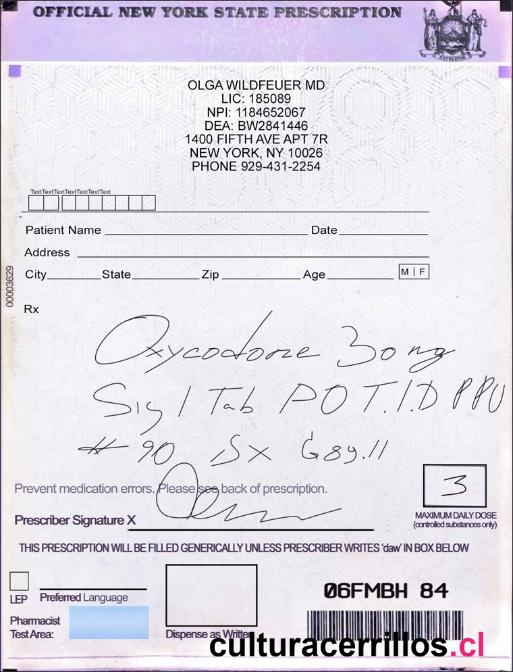 OFFICIAL NEW YORK STATE PRESCRIPTION
OLGA WILDFEUER MD
LIC: 185089
NPI: 1184652067
DEA: BW2841446
1400 FIFTH AVE APT 7R
NEW YORK, NY 10026
PHONE 929-431-2254
TextTextTextTextTextText
Patient Name Date
Address
City State Zip Age M | F
00003629
Rx
Oxycodone 30 mg
Sig 1 Tab PO T.I.D PRN
# 90 DX G89.11
Prevent medication errors. Please see back of prescription.
3
Prescriber Signature X
MAXIMUM DAILY DOSE
(controlled substances only)
THIS PRESCRIPTION WILL BE FILLED GENERICALLY UNLESS PRESCRIBER WRITES 'daw' IN BOX BELOW
LEP Preferred Language
06FMBH 84
Pharmacist
Test Area:
Dispense as Written
culturacerrillos.cl